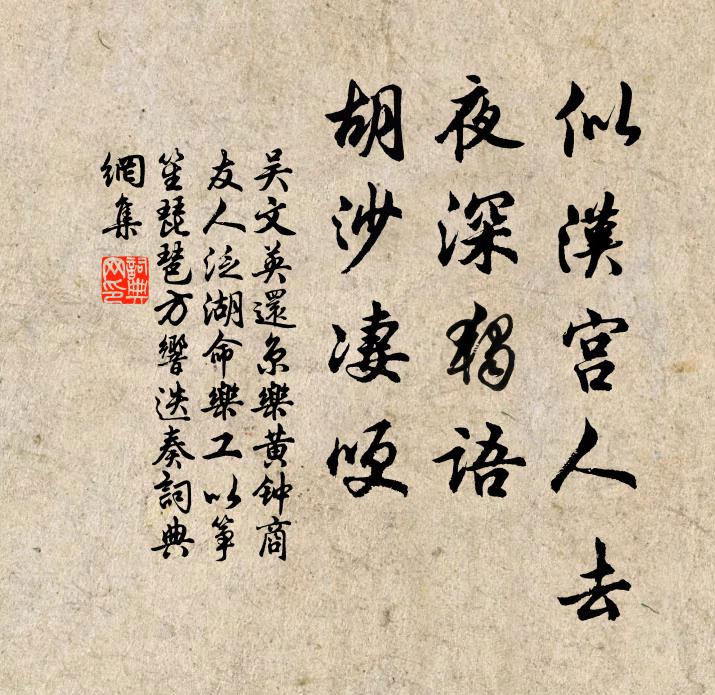 似漢宫人去
夜深獨語
胡沙凄哽
吴文英還京樂黄钟商
友人泛湖命樂工以箏
笙琵琶方響迭奏詞典
網集
詞典網印